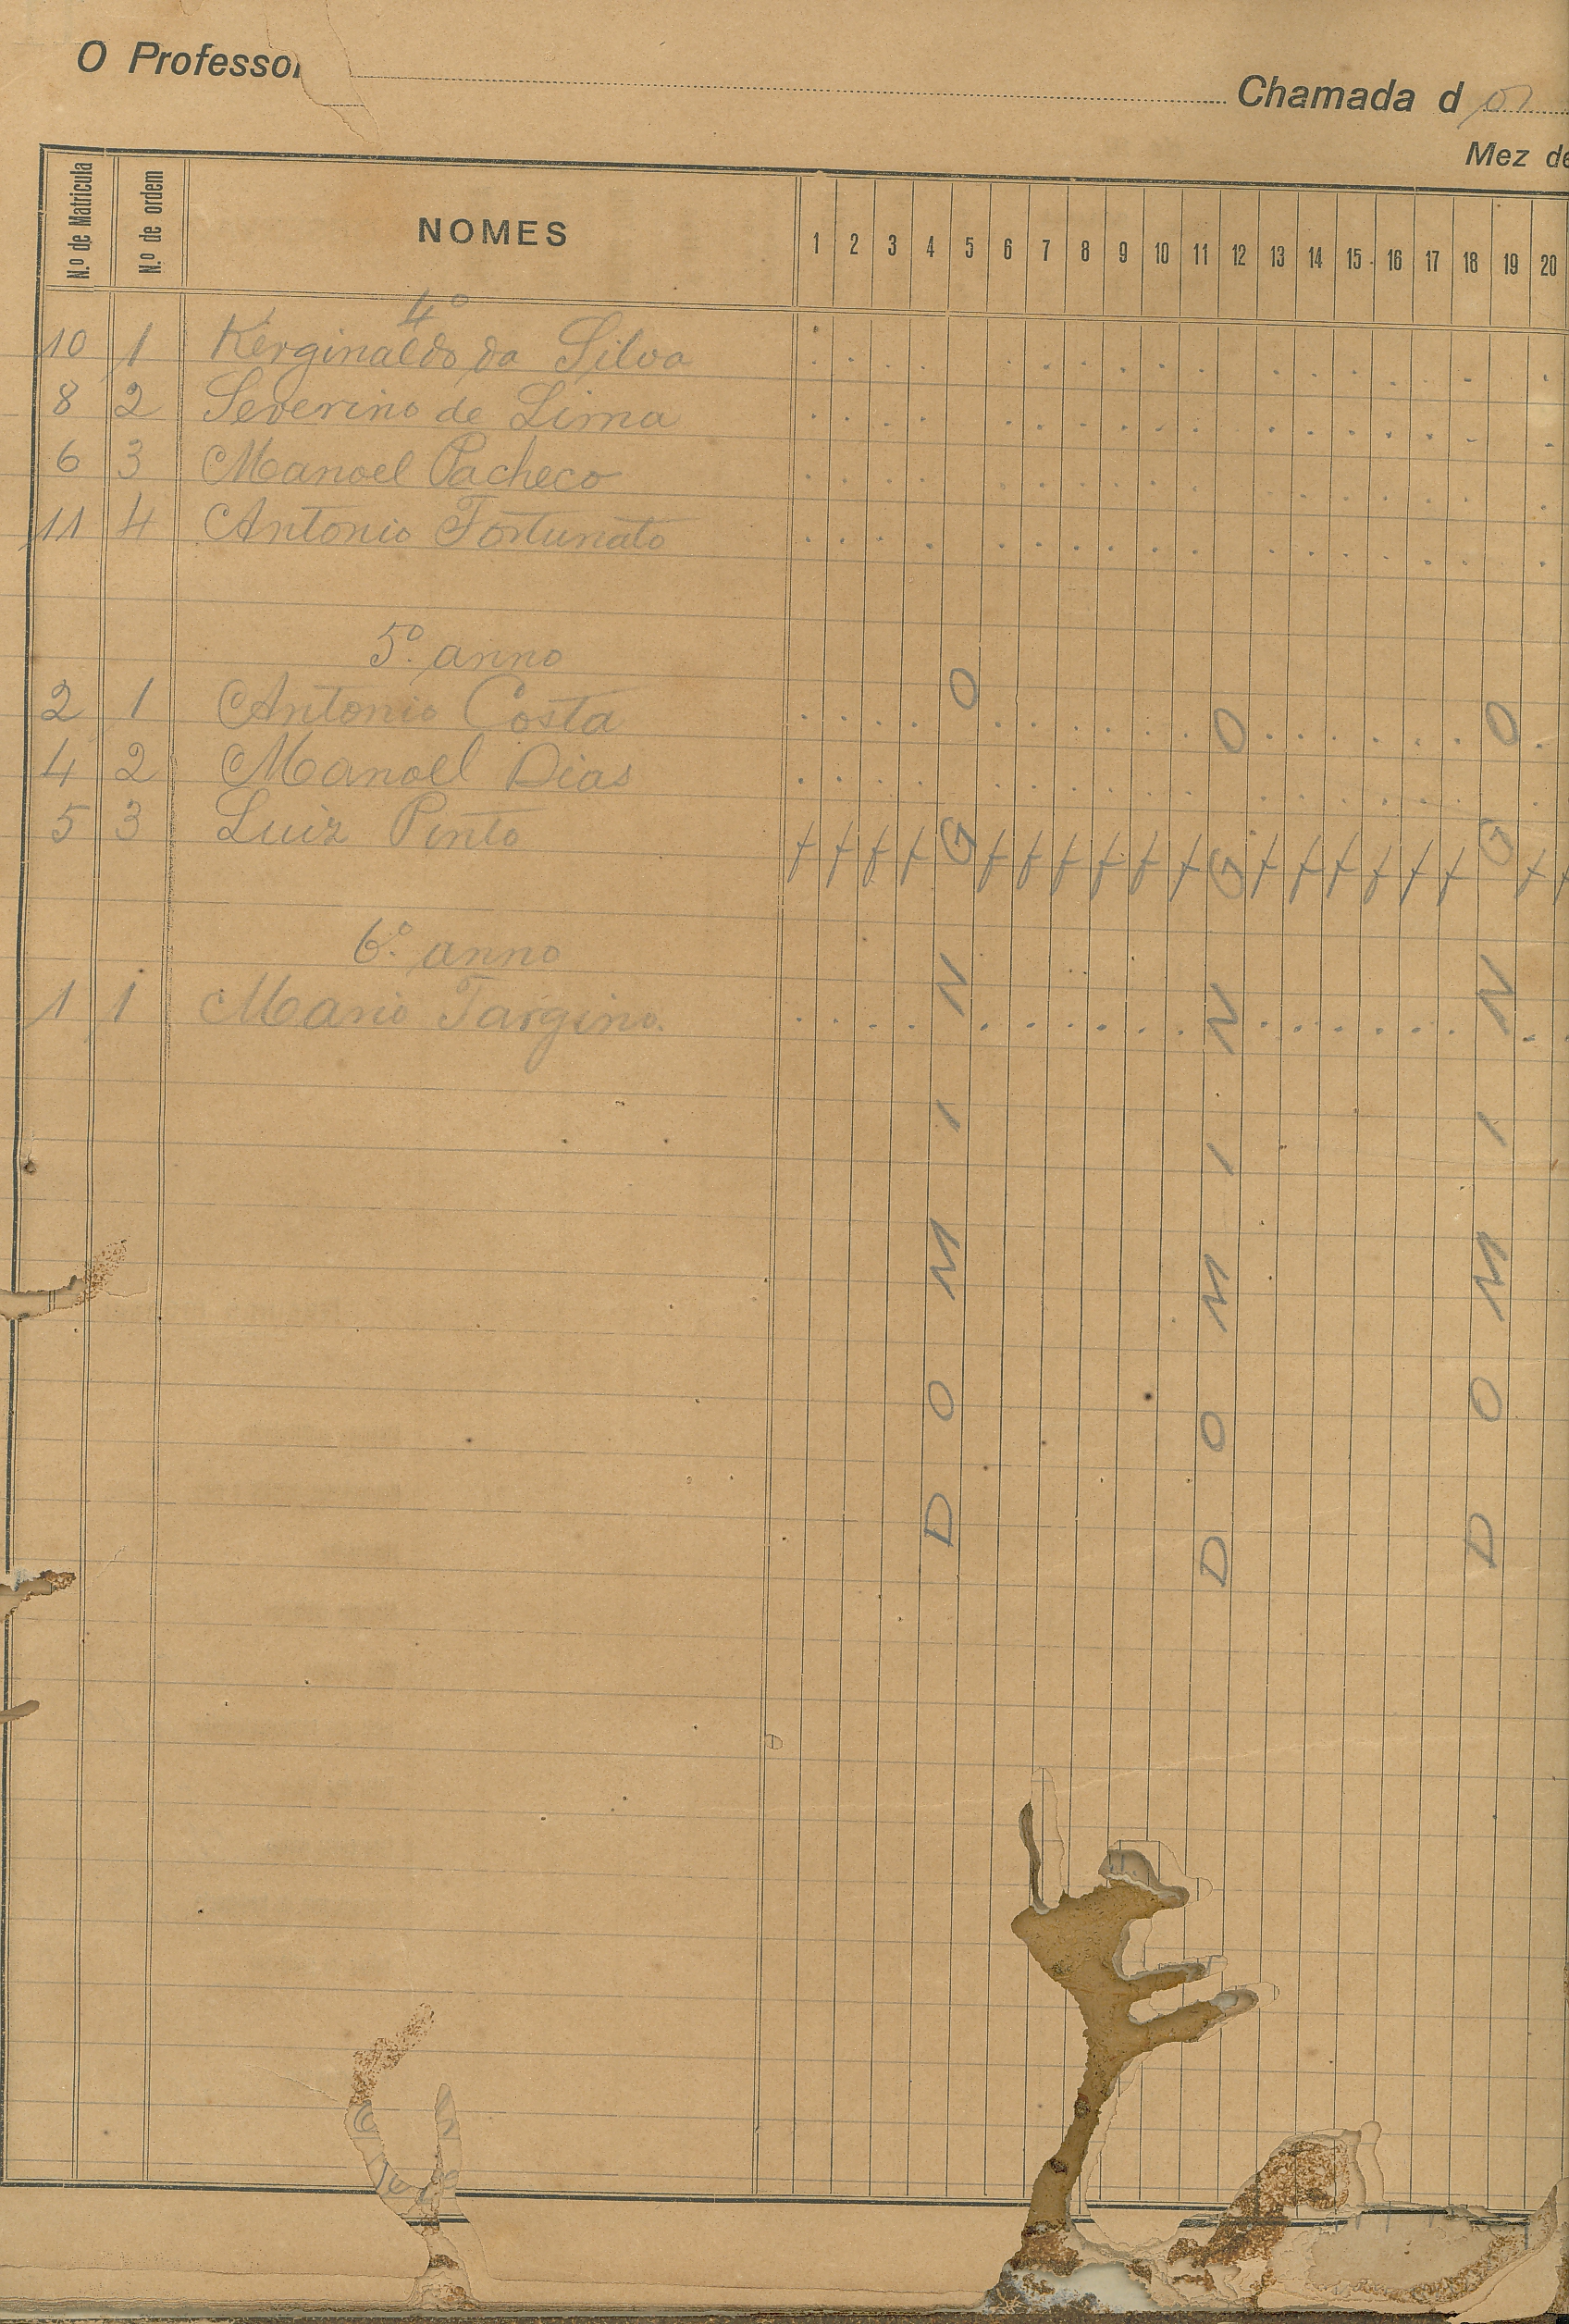 O Professor
Chamada d
Mez de
N.º de Matricula N.º de ordem NOMES 1 2 3 4 5 6 7 8 9 10 11 12 13 14 15 16 17 18 19 20
4º
10 1 Kerginaldo da Silva . . . . . . . . . . . . . . . . . .
8 2 Severino de Lima . . . . . . . . . . . . . . . . . .
6 3 Manoel Pacheco . . . . . . . . . . . . . . . . . .
11 4 Antonio Fortunato . . . . . . . . . . . . . . . . . .
5º anno
2 1 Antonio Costa . . . . . . . . . . . . . . . . . .
4 2 Manoel Dias . . . . . . . . . . . . . . . . . .
5 3 Luiz Pinto f f f f f f f f f f f f f f f f f f
6º anno
1 1 Mario Targino. . . . . . . . . . . . . . . . . . .
DOMINGO
DOMINGO
DOMINGO